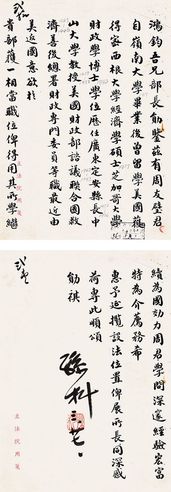 鴻鈞吾兄部長勛鑒茲有周友瑩君
自嶺南大學畢業後留美曾獲
得密西根大學經濟學碩士芝加哥大學
財政學博士學位歷任廣東定安縣長中
山大學教授美國財政部諮議聯合國救
濟善後總署財政專門委員等職最近由
美返國意欲於
貴部獲一相當職位俾得用其所學繼
續為國効力周君學問深邃經驗宏富
特為介薦務希
惠予延攬設法位置俾展所長同深感
荷專此順頌
勛祺
孫科
立法院用箋